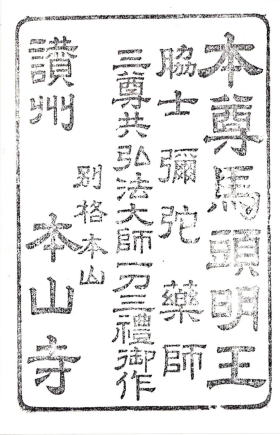 本尊馬頭明王
脇士彌陀藥師
三尊共弘法大師一刀三禮御作
別格本山
讃州 本山寺